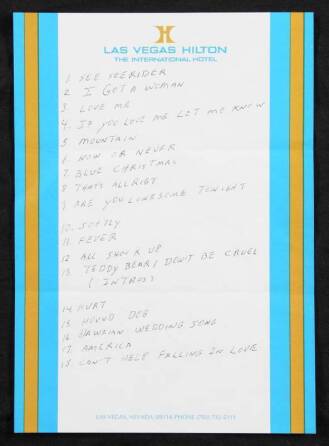 H
LAS VEGAS HILTON
THE INTERNATIONAL HOTEL
1. SEE SEE RIDER
2 I GOT A WOMAN
3 LOVE ME
4. IF YOU LOVE ME LET ME KNOW
5 MOUNTAIN
6 NOW OR NEVER
7 BLUE CHRISTMAS
8 THATS ALL RIGHT
9 ARE YOU LONESOME TONIGHT
10. SOFTLY
11. FEVER
12 ALL SHOOK UP
13 TEDDY BEAR / DON'T BE CRUEL
(INTROS)
14 HURT
15 HOUND DOG
16 HAWAIIAN WEDDING SONG
17. AMERICA
18. CAN'T HELP FALLING IN LOVE
LAS VEGAS, NEVADA 89114 PHONE (702) 732-5111